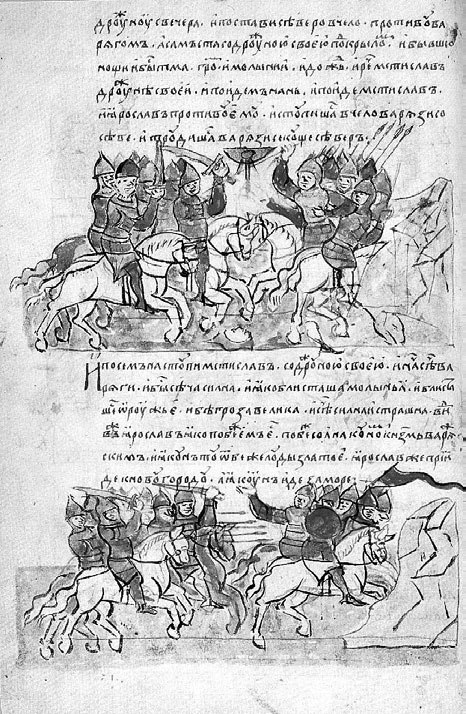 дроуноу свечера, и постави северо в чело, противоу ва
рягомъ, а самъ ста со дроуною своею по крылом, и бывши
нощи и бысть тма, гром и молыни, и дождь, и рече мстиславъ
дроунѣ своеи, поидем на нь, и поиде мстиславъ,
и ярославъ противоу емоу, и стоупиша в чело варязи со
севе, и троудиша варязи секоуще северъ,
и посем настоупи мстиславъ, со дроуною своею, и нача сечи варя
ги, и бысть сеча силна, и яко блисташа молыньи, и блис
шаоroужье, и бѣ гроза велика, и сеча силна и страшна, ви
ярославъ яко побежаемъ е, побеже с якоуном кнзмъ варя
скимъ, и якоун тоу отбеже лоуды златое, ярославъ же при
де к новоугородоу, а якоунъ иде за море